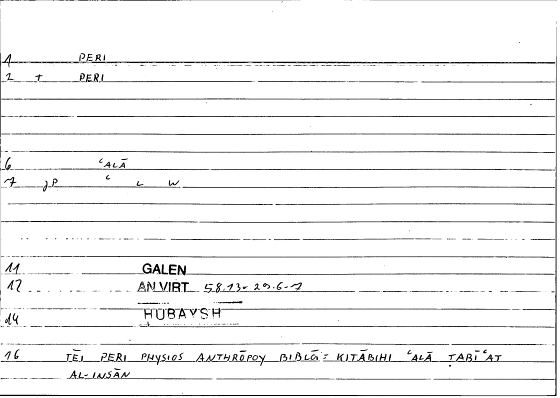 1 PERI
2 + PERI
6 ʿALĀ
7 jP ʿ L W
11 GALEN
12 AN VIRT 58.13- 29.6-7
14 HUBAYSH
16 TĒI PERI PHYSIOS ANTHRŌPOY BIBLŌI = KITĀBIHI ʿALĀ ṬABĪʿAT
AL-INSĀN